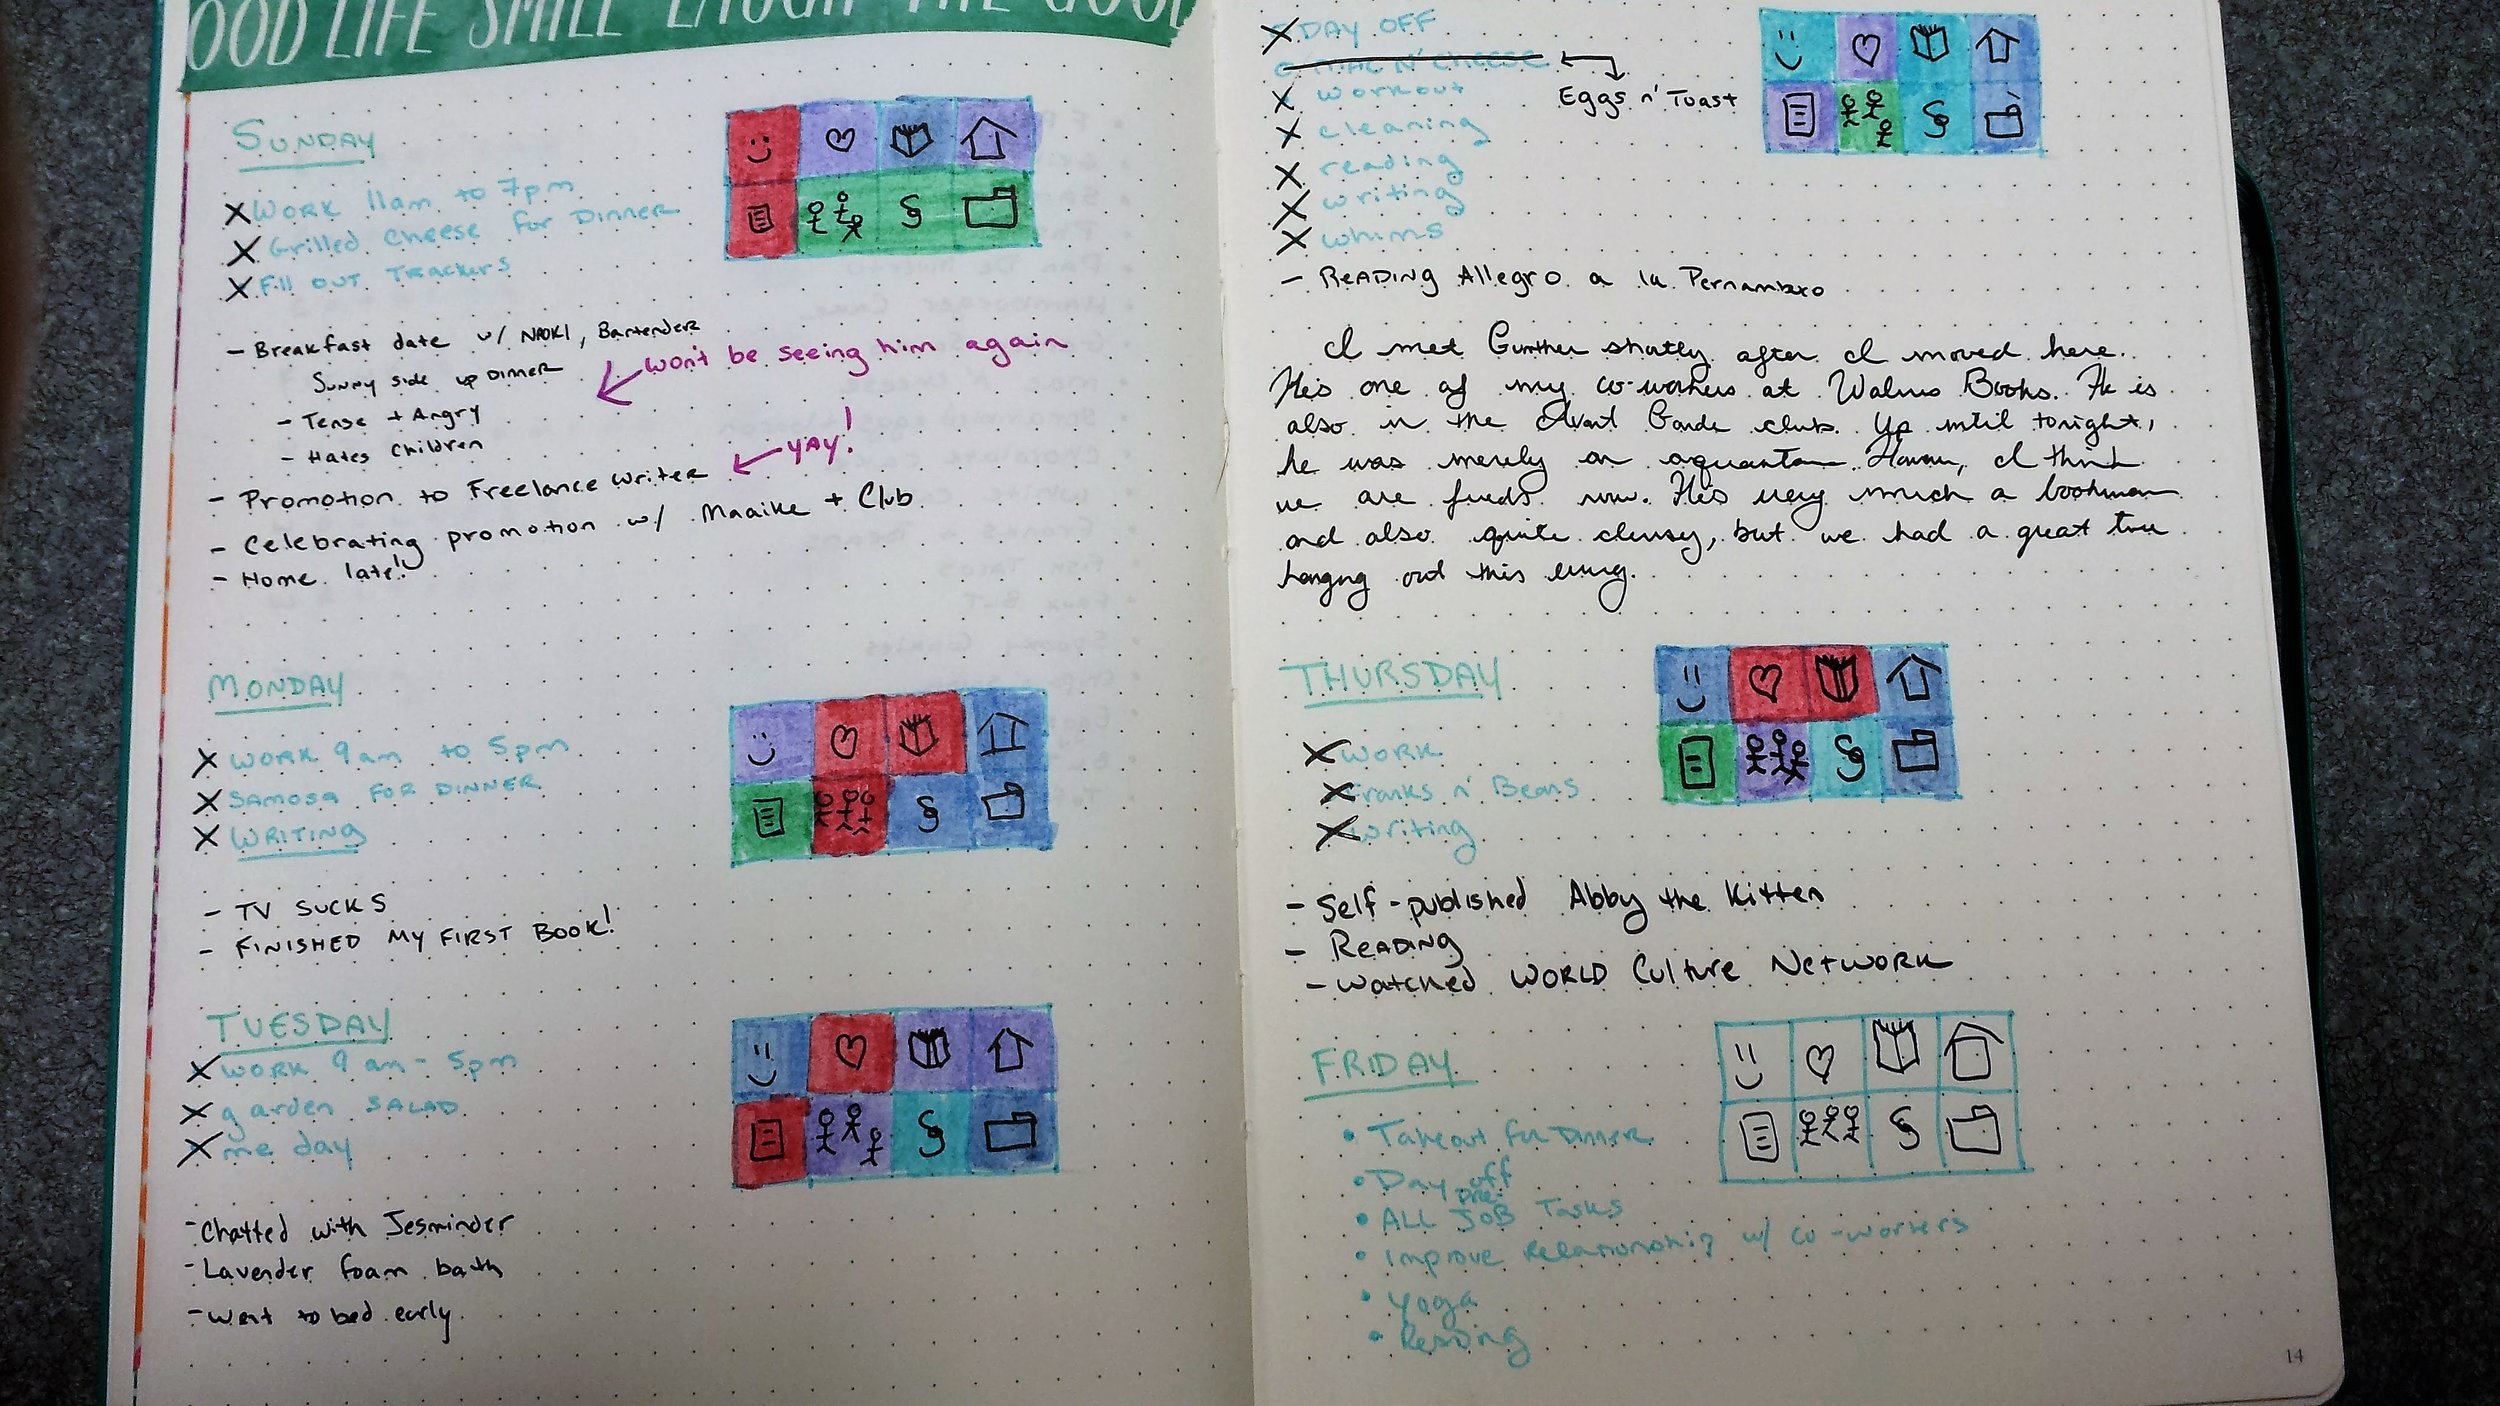 OOD LIFE SMILE LAUGH THE GOOD
SUNDAY
WORK 11am to 7pm
Grilled Cheese for Dinner
Fill out Trackers
- Breakfast date w/ NAOKI, Bartender
Sunny side up Dinner
won't be seeing him again
- Tense + Angry
- Hates Children
- Promotion to Freelance writer
YAY!
- Celebrating promotion w/ Maaike + Club
- Home late!
MONDAY
WORK 9am to 5pm
Samosa for Dinner
Writing
- TV SUCKS
- FINISHED MY FIRST BOOK!
TUESDAY
WORK 9am - 5pm
garden SALAD
me day
- Chatted with Jesminder
- Lavender foam bath
- Went to bed early
DAY OFF
MAC N' CHEESE
Eggs n' Toast
workout
cleaning
reading
writing
whims
- Reading Allegro a la Pernambxo
I met Gunther shortly after I moved here.
He's one of my co-workers at Walrus Books. He is
also in the Avant Garde club. Up until tonight,
he was merely an However, I think
we are now. He's very much a bookman
and also quite clumsy, but we had a great time
hanging out this evening.
THURSDAY
WORK
Franks n' Beans
Writing
- Self-published Abby the Kitten
- Reading
- Watched World Culture Network
FRIDAY
Takeout for Dinner
Day off
ALL JOB Tasks
Improve Relationship w/ co-workers
Yoga
Reading
14